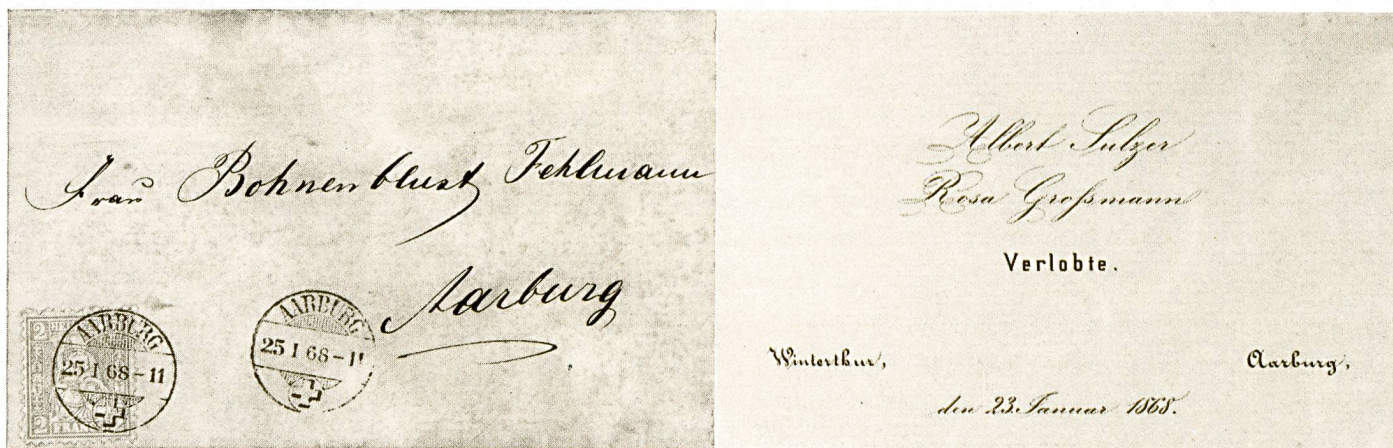 Frau Bohnenblust Fehlmann
Aarburg
2
2
FRANCO
AARBURG
25 I 68-11
AARBURG
25 I 68-11
Albert Sulzer
Rosa Großmann
Verlobte.
Winterthur, Aarburg,
den 23. Januar 1868.